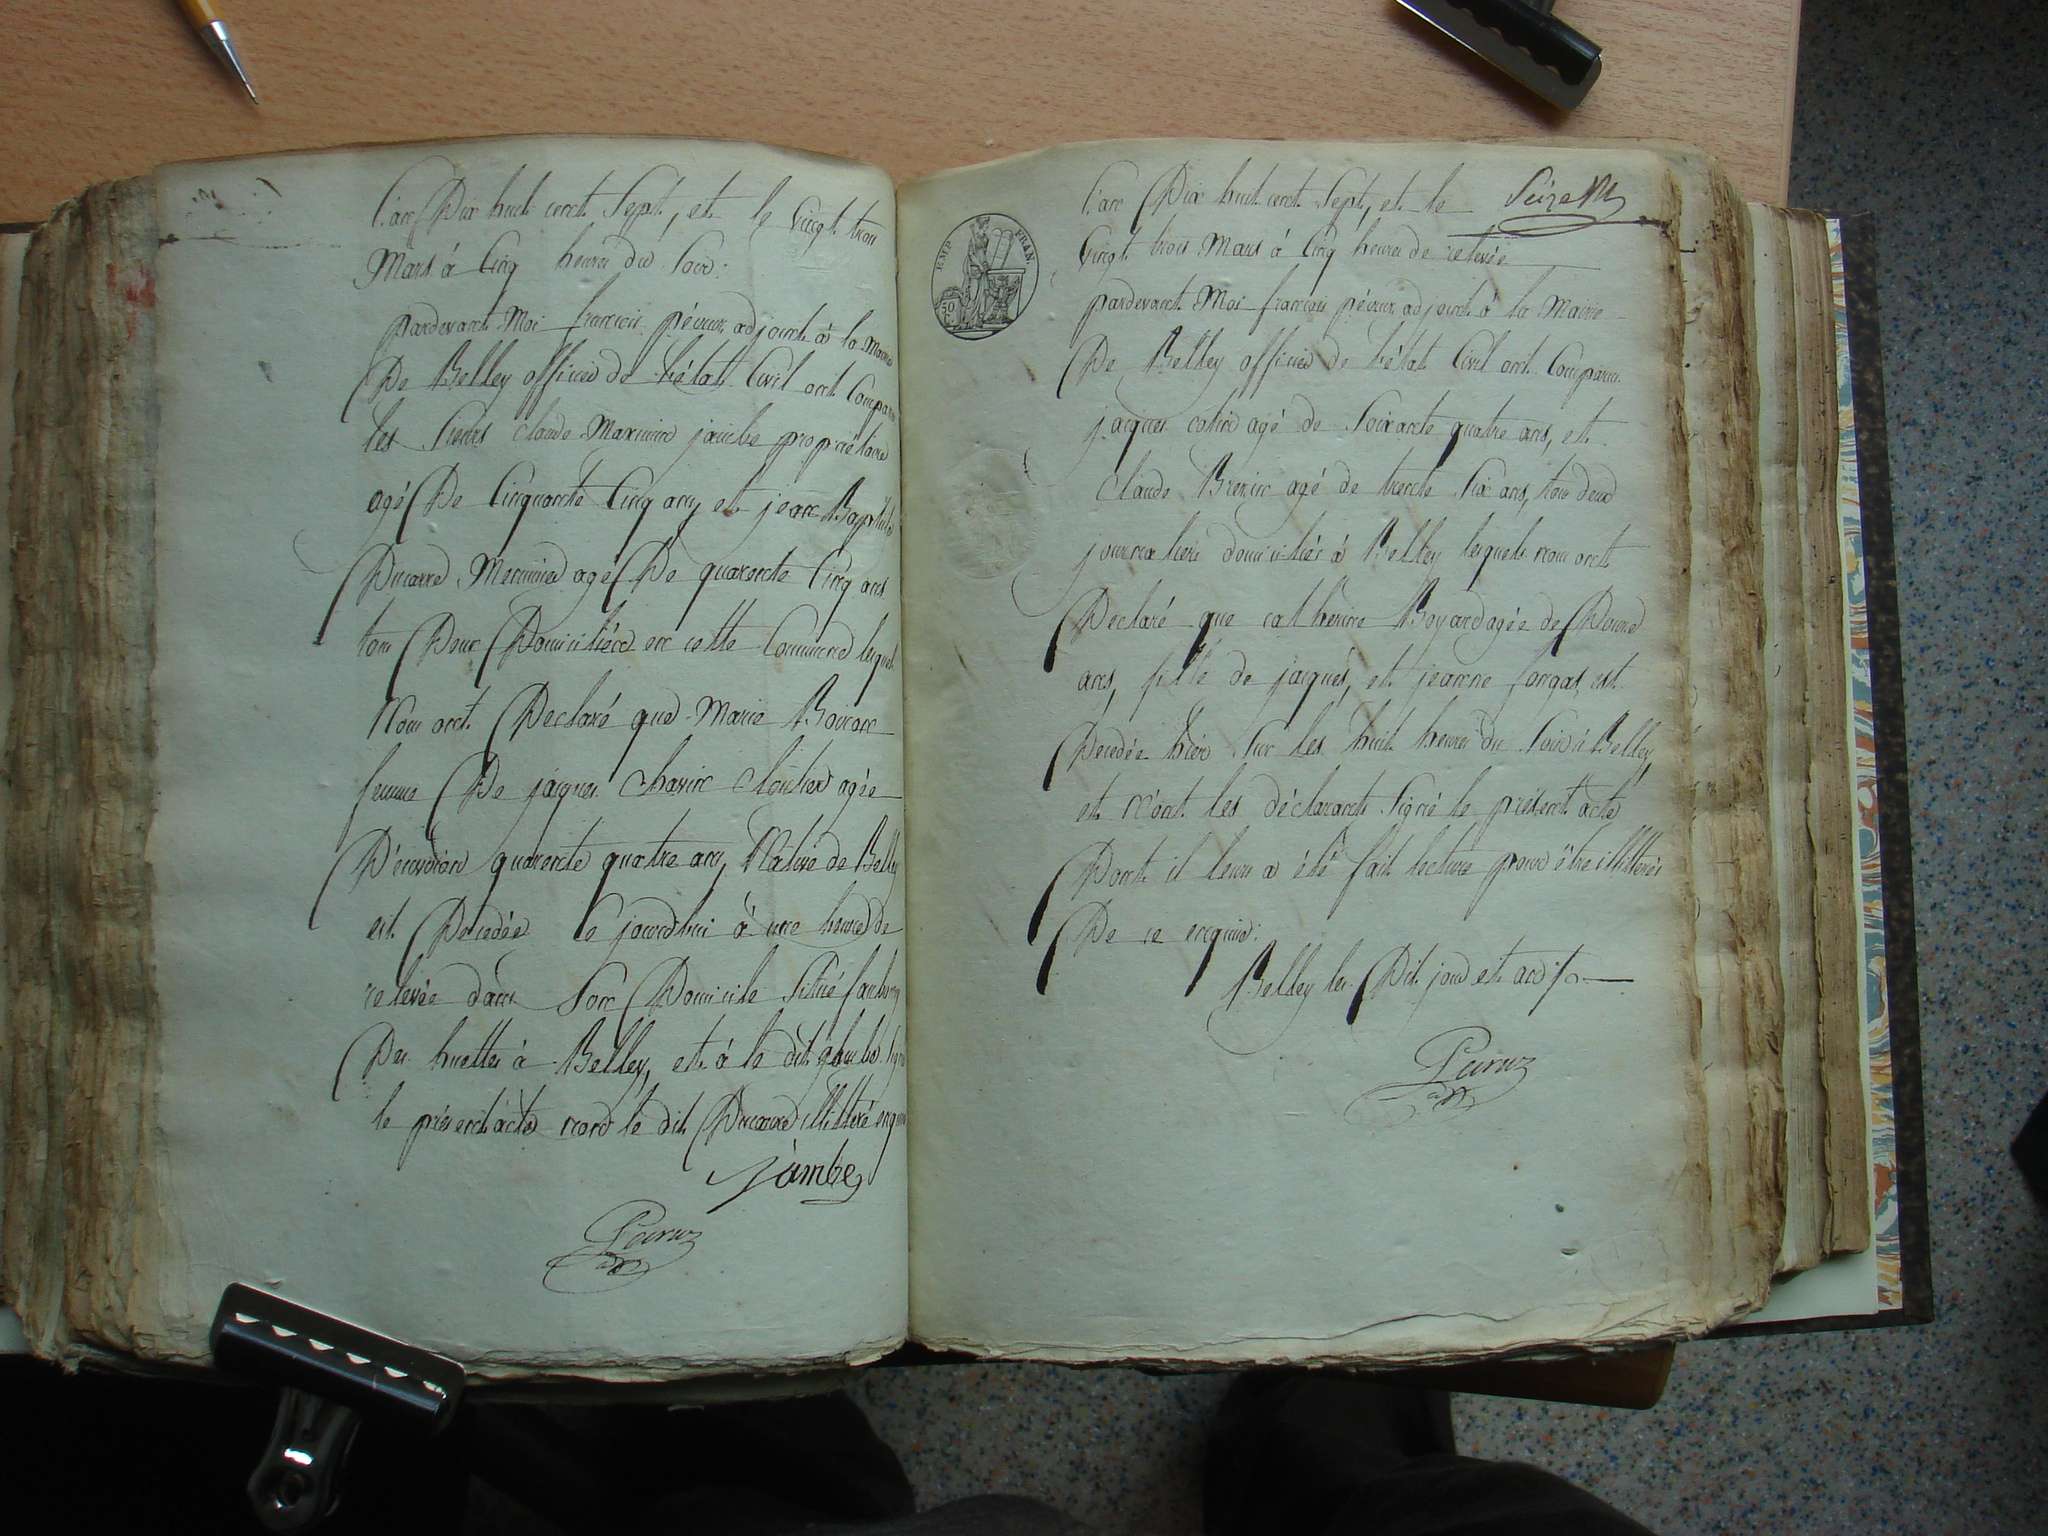 L'an Dix huit cent Sept, et le Vingt trois
Mars à Cinq heures du Soir:
pardevant Moi françois péruz adjoint à la Mairie
De Belley officier de l'état Civil ont Comparu
les Sieurs Claude Maximin jambe propriétaire
agé De Cinquante Cinq ans, et jean Baptiste
Ducarre Menuisier agé De quarante Cinq ans
tous Deux Domiciliés en cette Commune lesquels
Nous ont Declaré que Marie
femme De jacques Chavin Cloutier agée
D'environ quarante quatre ans, Native de Belley
est Decedée Ce jourd'hui à une heure de
relevée dans Son Domicile Situé faubourg
Des huttes à Belley, et à le dit jambe Signé
le présent acte non le dit Ducarre illittéré enquis
Jambe
Péruz
adjt
EMP. FRAN.
50 C.
L'an Dix huit cent Sept, et le
Vingt trois Mars à Cinq heures de relevée
pardevant Moi françois péruz adjoint à la Mairie
De Belley officier de l'état Civil ont Comparu
jacques colin agé de Soixante quatre ans, et
Claude agé de trente Six ans, tous deux
journaliers domiciliés à Belley lesquels nous ont
Declaré que catherine Boyard agée de Douze
ans, fille de jacques, et jeanne fongas, est
Decedée hier Sur les huit heures du Soir à Belley,
et n'ont les déclarants Signé le présent acte
Dont il leur a été fait lecture pour être illittérés
De ce enquis:
Belley les Dit jour et an
Péruz
adjt